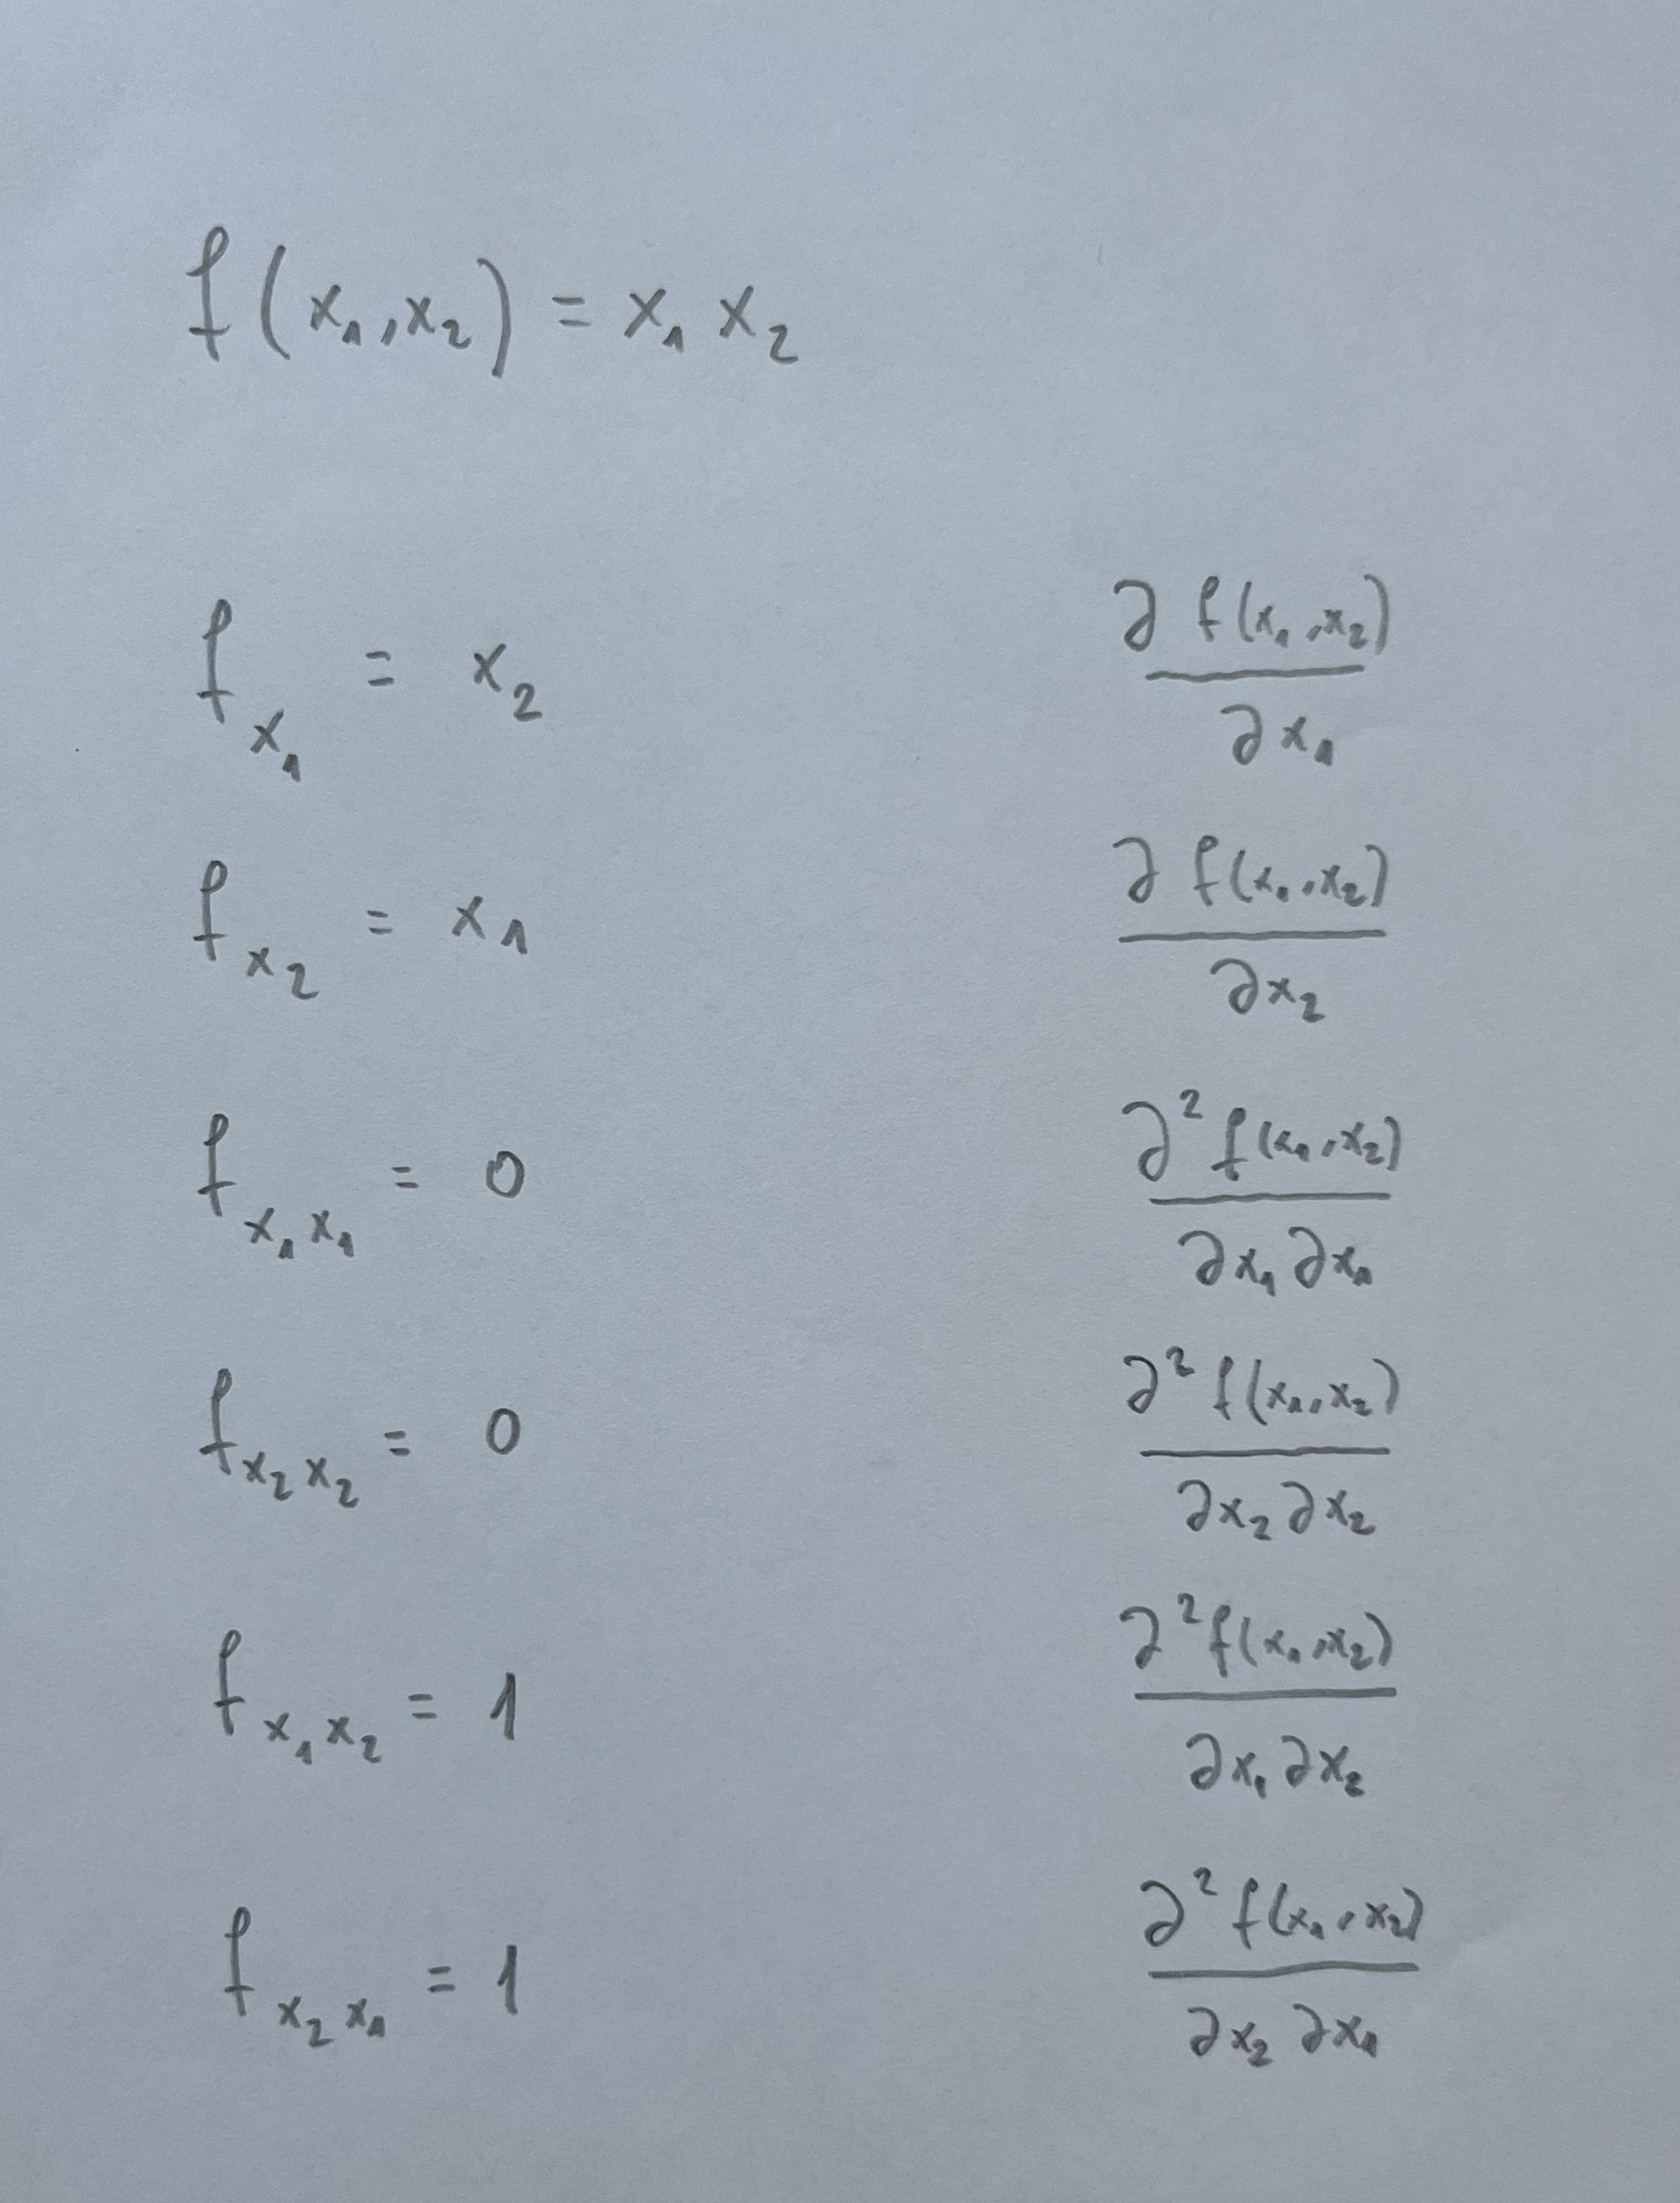 f(x₁,x₂) = x₁ x₂
f_{x₁} = x₂ ∂ f(x₁,x₂) / ∂x₁
f_{x₂} = x₁ ∂ f(x₁,x₂) / ∂x₂
f_{x₁x₁} = 0 ∂² f(x₁,x₂) / ∂x₁ ∂x₁
f_{x₂x₂} = 0 ∂² f(x₁,x₂) / ∂x₂ ∂x₂
f_{x₁x₂} = 1 ∂² f(x₁,x₂) / ∂x₁ ∂x₂
f_{x₂x₁} = 1 ∂² f(x₁,x₂) / ∂x₂ ∂x₁